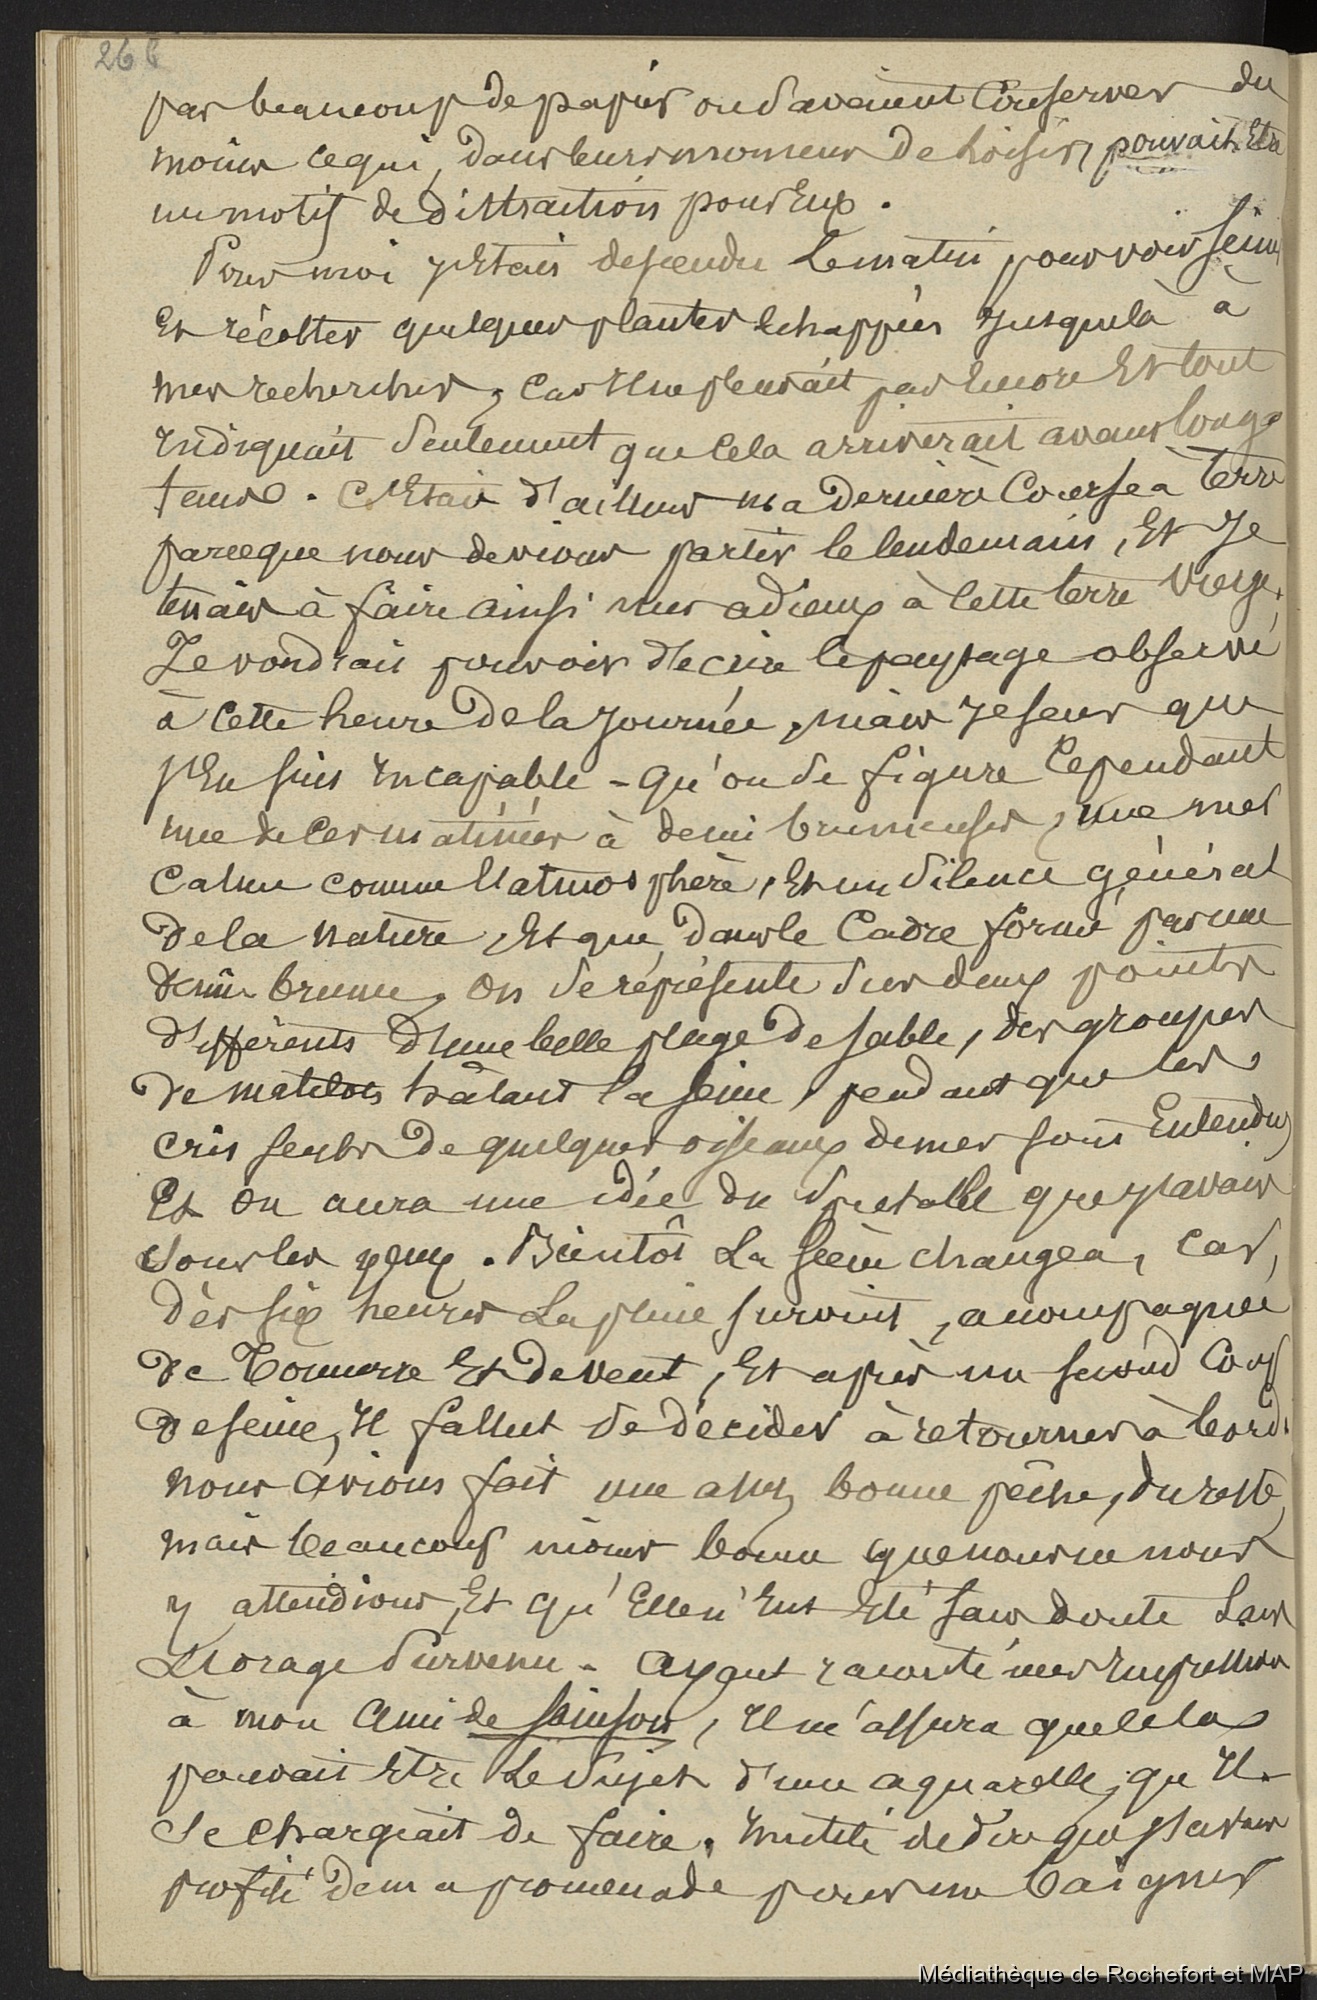 266
pas beaucoup de papier ou savaient conserver du
moins ce qui, dans leurs momens de loisir, pouvait etre
un motif de distraction pour Eux.
Pour moi j'Etais descendu le matin pour voir seiner
Et récolter quelques plantes Echappées jusque là à
mes recherches, car Il ne pleuvait pas Encore Et tout
Indiquait seulement que cela arriverait avant long-
tems. C'Etait d'ailleurs ma dernière Course à terre
parceque nous devions partir le lendemain, Et Je
tenais à faire ainsi mes adieux à cette terre vierge.
Je voudrais pouvoir décrire le paysage observé
à cette heure de la journée, mais je sens que
j'En suis Incapable - qu'on se figure Cependant
une de ces matinées à demi brumeuses, une mer
calme comme l'atmosphère, Et un silence général
de la nature, Et que, dans le Cadre formé par une
demie brume, on se représente sur deux points
différents d'une belle plage de sable, des groupes
de matelots hâlant la seine, pendant que les
cris seuls de quelques oiseaux de mer sont Entendus
Et on aura une idée du spectacle que j'avais
sous les yeux. Bientôt la scène changea, car,
dès six heures la pluie survint, accompagnée
de Tonnerre Et de vent, Et après un second Coup
de seine, Il fallut se décider à retourner à bord.
nous avions fait une assez bonne pêche, du reste,
mais beaucoup moins bonne que nous ne nous
y attendions, Et qu'Elle n'Eut Eté sans doute sans
l'orage survenu - ayant raconté mes Impressions
à mon ami de Sainson, Il m'assura que cela
pouvait Etre le sujet d'une aquarelle, qu'Il
se chargeait de faire. Inutile de dire que j'avais
profité de ma promenade pour me baigner
Médiathèque de Rochefort et MAP